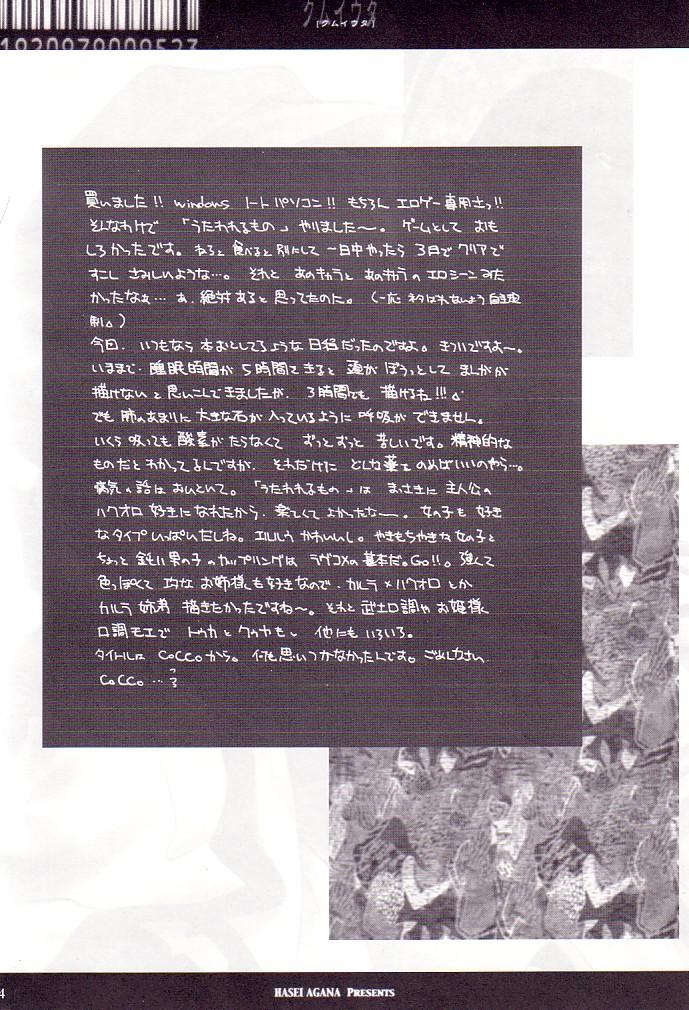 クムイウタ
[クムイウタ]
1920979009523
買いました!! windows ノートパソコン!! もちろん エロゲー専用さっ!!
そんなわけで 「うたわれるもの」 やりました〜。 ゲームとして おも
しろかったです。 ねると 食べると 別にして 一日中やったら 3日で クリアで
すこし さみしいような…。 それと あのキャラと あのキャラの エロシーン みた
かったなぁ… あ、絶対あると思ってたのた。 (一応 ネタばれないよう 自主規
制。)
今回、いつもなら 本おとしてるような 日程だったのですよ。 きついですよ〜。
いままで、睡眠時間が 5時間てきると 頭が ぼうっとして まんがが
描けない と 思いこんできましたが、 3時間でも 描けるね!!!
でも 肺のあたりに 大きな石が 入っているように 呼吸が できません。
いくら 吸っても 酸素が たらなくて ずっとずっと 苦しいです。 精神的な
ものだと わかってるんですが、 それだけに どんな薬を のめばいいのやら…。
病気の話は おいといて。 「うたわれるもの」は まっさきに 主人公の
ハクオロ 好きに なれたから、楽しくて よかったな〜。 女の子も 好き
なタイプ いっぱいだしね。 エルルゥ かわいいし。 やきもちやきな 女の子と
ちょっと 鈍い 男の子 のカップリングは ラヴコメの 基本だ。Go!!。 強くて
色っぽくて 巧な お姉様も 好きなので、カルラ×ハクオロ とか
カルラ 姉弟 描きたかったですね〜。 それと 武士口調や お姫様
口調モエで トウカ と クーヤ も。 他にも いろいろ。
タイトルは Coccoから。 何も思いつかなかったんです。 ごめんなさい
Cocco…
4
HASEI AGANA PRESENTS